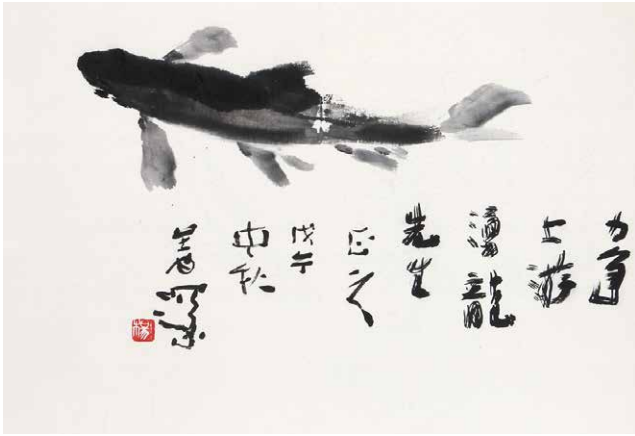 力爭
上游
龍
先生
正之
戊午
中秋
善深
楊